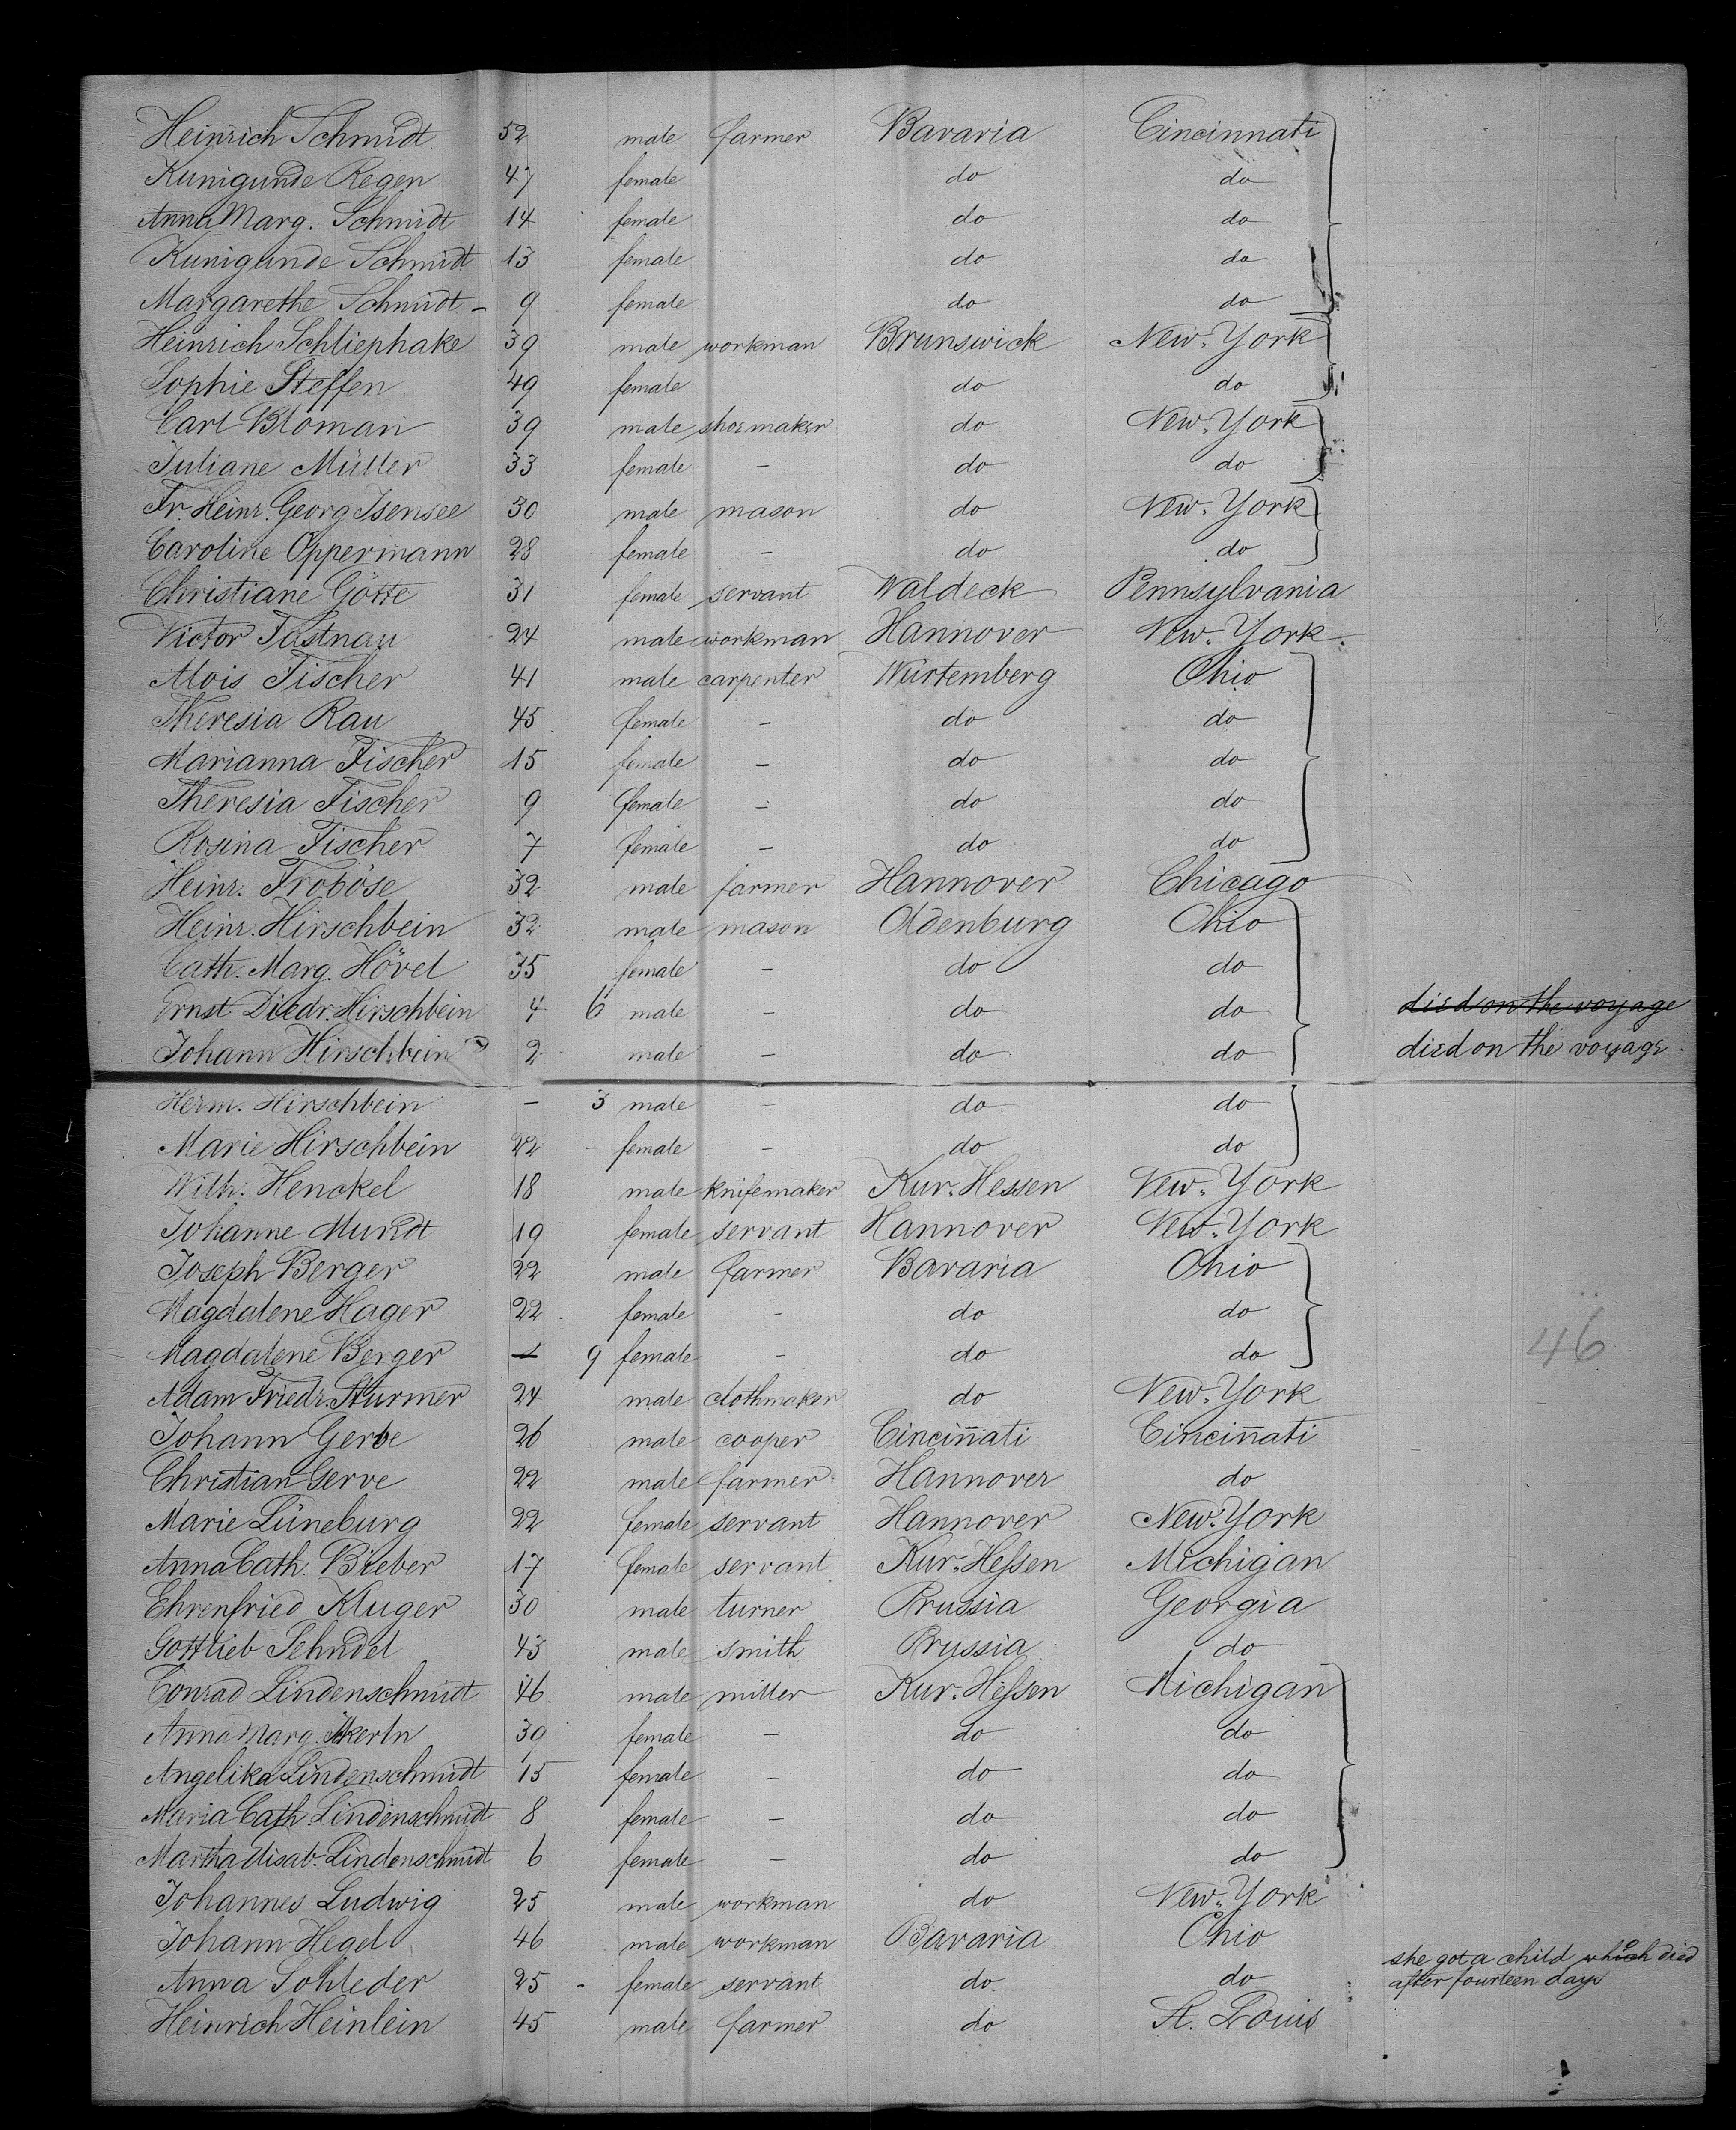 Heinrich Schmidt 52 male farmer Bavaria Cincinnati
Kunigunde Regen 47 female do do
Anna Marg. Schmidt 14 female do do
Kunigunde Schmidt 13 female do do
Margarethe Schmidt - 9 female do do
Heinrich Schliephake 39 male workman Brunswick New-York
Sophie Steffen 49 female do do
Carl Bloman 39 male shoemaker do New-York
Juliane Müller 33 female - do do
Fr. Heinr. Georg Isensee 30 male mason do New-York
Caroline Oppermann 28 female - do do
Christiane Götte 31 female servant Waldeck Pennsylvania
Victor Fastnau 24 male workman Hannover New-York
Alois Fischer 41 male carpenter Würtemberg Ohio
Theresia Rau 45 female - do do
Marianna Fischer 15 female - do do
Theresia Fischer 9 female - do do
Rosina Fischer 7 female - do do
Heinr. Froböse 32 male farmer Hannover Chicago
Heinr. Hirschbein 32 male mason Oldenburg Ohio
Cath. Marg. Hövel 35 female - do do
Ernst Diedr. Hirschbein 4 6 male - do do died on the voyage
Johann Hirschbein 2 male - do do died on the voyage
Herm. Hirschbein - 3 male - do do
Marie Hirschbein 22 - female - do do
Wilh. Henckel 18 male knifemaker Kur-Hessen New-York
Johanne Mundt 19 female servant Hannover New-York
Joseph Berger 22 male farmer Bavaria Ohio
Magdalene Hager 22 female - do do
Magdalene Berger - 9 female - do do
46
Adam Friedr. Sturmer 24 male clothmaker do New-York
Johann Gerve 26 male cooper Cincinnati Cincinnati
Christian Gerve 22 male farmer Hannover do
Marie Lüneburg 22 female servant Hannover New-York
Anna Cath. Bieber 17 female servant Kur-Hessen Michigan
Ehrenfried Kluger 30 male turner Prussia Georgia
Gottlieb 43 male smith Prussia do
Conrad Lindenschmidt 46 male miller Kur-Hessen Michigan
Anna Marg. 30 female - do do
Angelika Lindenschmidt 15 female - do do
Maria Cath. Lindenschmidt 8 female - do do
Martha Lindenschmidt 6 female - do do
Johannes Ludwig 25 male workman do New-York
Johann Hegel 46 male workman Bavaria Ohio
Anna Sohleder 25 - female servant do do she got a child which died
after fourteen days
Heinrich Heinlein 45 male farmer do St. Louis